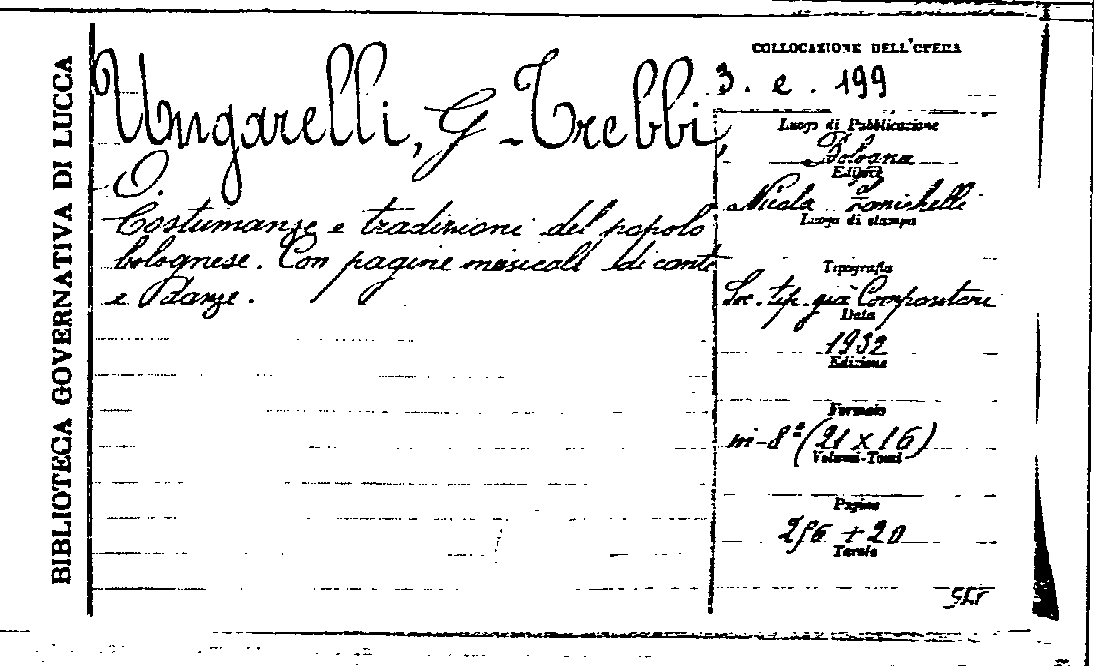 BIBLIOTECA GOVERNATIVA DI LUCCA
Ungarelli, G - Trebbi,
O.
Costumanze e tradizioni del popolo
bolognese. Con pagine musicali di canti
e danze.
COLLOCAZIONE DELL'OPERA
3. e. 199
Luogo di Pubblicazione
Bologna
Editore
Nicola Zanichelli
Luogo di stampa
Tipografia
Soc. tip. già Compositori
Data
1932
Edizione
Formato
in-8º (21 x 16)
Volumi-Tomi
Pagine
296 + 20
Tavole